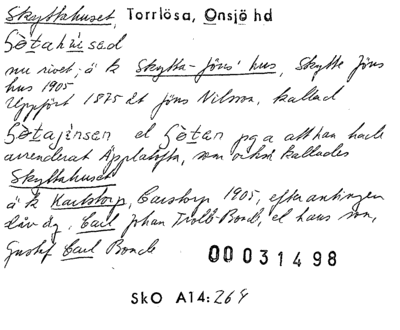 Skyttahuset, Torrlösa, Onsjö hd
Götahused
nu rivet; ä k Skytta-Jöns' hus, Skytte Jöns
hus 1905
Uppfört 1875 åt Jöns Nilsson, kallad
Götajénsen el Götan pga att han hade
arrenderat Äpplatofta, som också kallades
Skyttahuset
ä k Karlstorp, Carstorp 1905, efter antingen
dåv äg. Carl Johan Trolle-Bonde, el hans son,
Gustef Carl Bonde
00031498
SkO A14:264